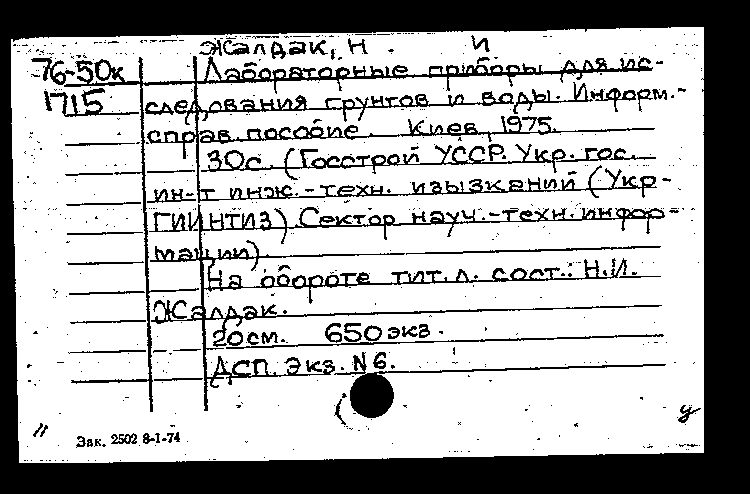 Жалдак, Н. И
76-50к Лабораторные приборы для ис-
1715 следования грунтов и воды. Информ.-
справ. пособие. Киев, 1975.
30с. (Госстрой УССР. Укр. гос.
ин-т инж.-техн. изысканий (Укр-
ГИИНТИЗ) Сектор науч.-техн. инфор-
мации).
На обороте тит. л. сост.: Н.И.
Жалдак.
20см. 650 экз.
ДСП. Экз. N 6.
11 Зак. 2502 8-1-74